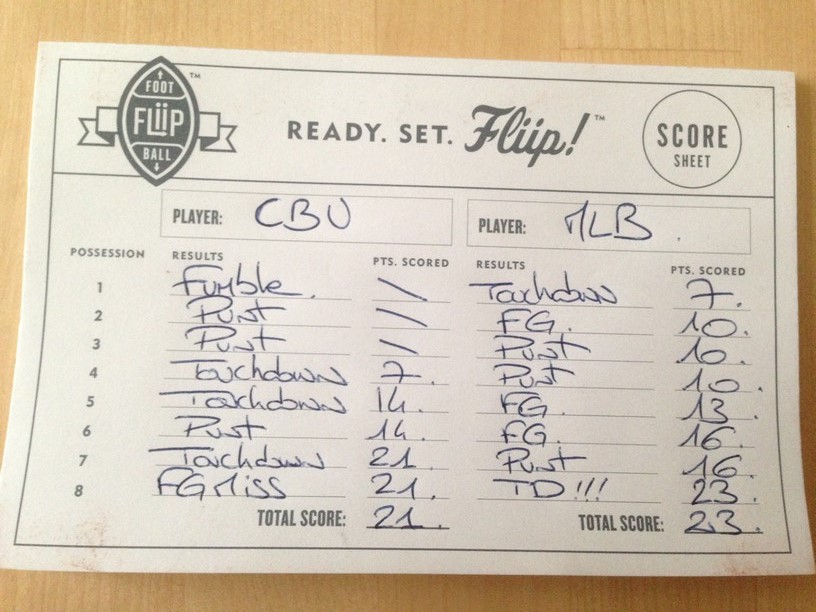 FOOT
FLiiP
BALL
™
READY. SET. Fliip!™
SCORE
SHEET
PLAYER: CBU
PLAYER: MLB
POSSESSION RESULTS PTS. SCORED RESULTS PTS. SCORED
1 Fumble. \ Touchdown 7.
2 Punt \ FG. 10.
3 Punt \ Punt 10.
4 Touchdown 7. Punt 10.
5 Touchdown 14. FG. 13.
6 Punt 14. FG. 16.
7 Touchdown 21. Punt 16.
8 FG Miss 21. TD!!! 23.
TOTAL SCORE: 21. TOTAL SCORE: 23.